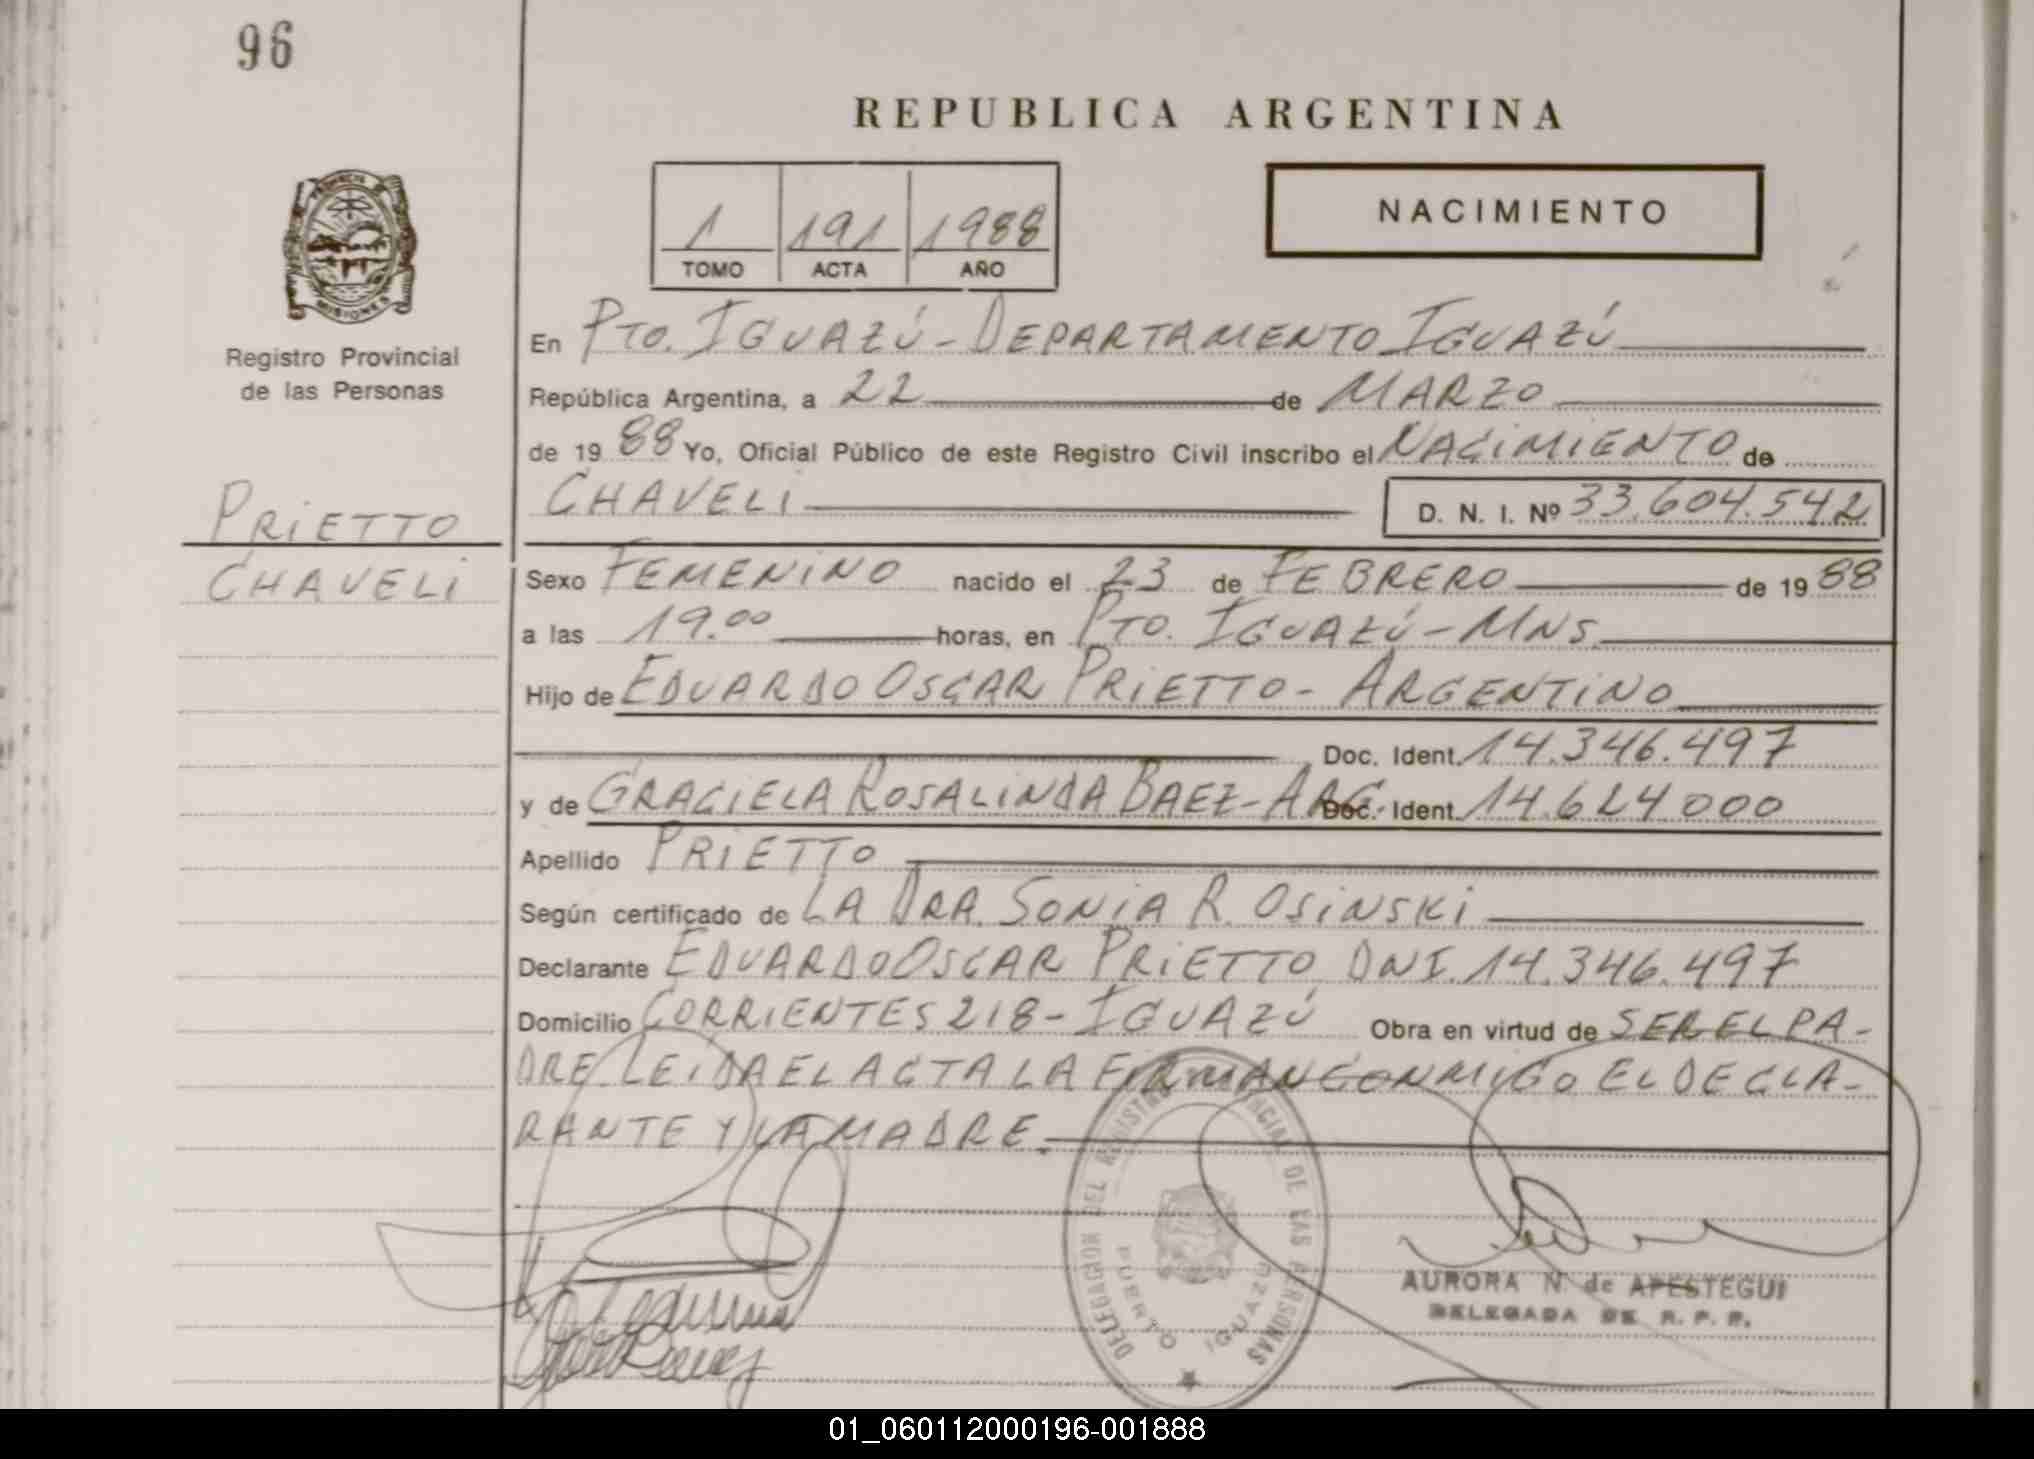 96
REPUBLICA ARGENTINA
PROVINCIA DE MISIONES
1 191 1988
TOMO ACTA AÑO
NACIMIENTO
Registro Provincial
de las Personas
PRIETTO
CHAVELI
En PTO. IGUAZÚ - DEPARTAMENTO IGUAZÚ
República Argentina, a 22 de MARZO
de 19 88 Yo, Oficial Público de este Registro Civil inscribo el NACIMIENTO de
CHAVELI D. N. I. Nº 33.604.542
Sexo FEMENINO nacido el 23 de FEBRERO de 19 88
a las 19.00 horas, en PTO. IGUAZÚ - MNS.
Hijo de EDUARDO OSCAR PRIETTO - ARGENTINO
Doc. Ident. 14.346.497
y de GRACIELA ROSALINDA BAEZ - ARG. Doc. Ident. 14.624000
Apellido PRIETTO
Según certificado de LA DRA. SONIA R. OSINSKI
Declarante EDUARDO OSCAR PRIETTO DNI. 14.346.497
Domicilio CORRIENTES 218 - IGUAZÚ Obra en virtud de SER EL PA-
DRE. LEIDA EL ACTA LA FIRMAN CONMIGO EL DECLA-
RANTE Y LA MADRE.
DELEGACION DEL REGISTRO PROVINCIAL DE LAS PERSONAS
PUERTO IGUAZU
AURORA N. de APESTEGUI
DELEGADA DE R. P. P.
01_060112000196-001888